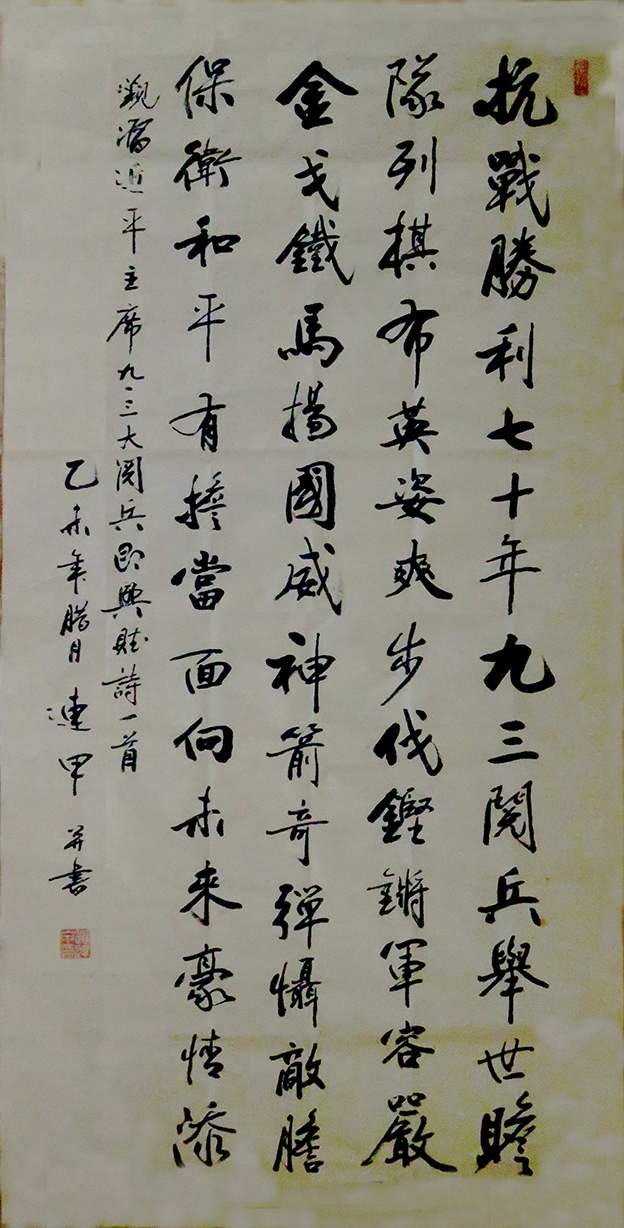 抗戰勝利七十年九三閱兵舉世瞻
隊列棋布英姿爽步伐鏗鏘軍容嚴
金戈鐵馬揚國威神箭奇彈懾敵膽
保衛和平有擔當面向未來豪情添
觀習近平主席九·三大閱兵即興賦詩一首
乙未年臘月連甲并書